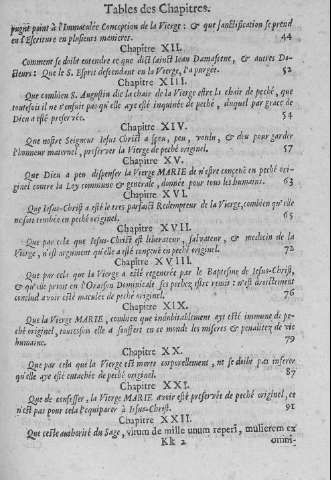 Tables des Chapitres.
pugne point à l'Immaculée Conception de la Vierge: & que sanctification se prend
en l'Escriture en plusieurs manieres. 44
Chapitre XII.
Comment se doibt entendre ce que dict sainct Iean Damascene, & autres Do-
cteurs: Que le S. Esprit descendant en la Vierge, l'a purgée. 52
Chapitre XIII.
Que combien S. Augustin die la chair de la Vierge estre la chair de peché, que
toutefois il ne s'ensuit pas qu'elle aye esté inquinée de peché, duquel par grace de
Dieu a esté preservée. 54
Chapitre XIV.
Que nostre Seigneur Iesus Christ a sçeu, peu, voulu, & deu pour garder
l'honneur maternel, preserver la Vierge de peché originel. 57
Chapitre XV.
Que Dieu a peu dispenser la Vierge MARIE de n'estre conceüe en peché ori-
ginel contre la Loy commune & generale, donnée pour tous les humains. 63
Chapitre XVI.
Que Iesus-Christ a esté le tres parfaict Redempteur de la Vierge, combien qu'elle
ne soit tombée en peché originel. 65
Chapitre XVII.
Que par cela que Iesus-Christ est liberateur, salvateur, & medecin de la
Vierge, n'est argument qu'elle a esté conceüe en peché originel. 72
Chapitre XVIII.
Que par cela que la Vierge a esté regenerée par le Baptesme de Iesus-Christ,
& qu'elle prioit en l'Oraison Dominicale ses pechez estre remis: n'est directement
conclud avoir esté maculée de peché originel. 76
Chapitre XIX.
Que la Vierge MARIE, combien que indubitablement aye esté immune de pe-
ché originel, toutesfois elle a souffert en ce monde les miseres & penalitez de vie
humaine. 79
Chapitre XX.
Que par cela que la Vierge est morte corporellement, ne se doibt pas inferer
qu'elle aye esté entachée de peché originel. 87
Chapitre XXI.
Que de confesser, la Vierge MARIE avoir esté preservée de peché originel, ce
n'est pas pour cela l'equiparer à Iesus-Christ. 91
Chapitre XXII.
Que ceste authorité du Sage, virum de mille unum reperi, mulierem ex
Kk 2 omni-